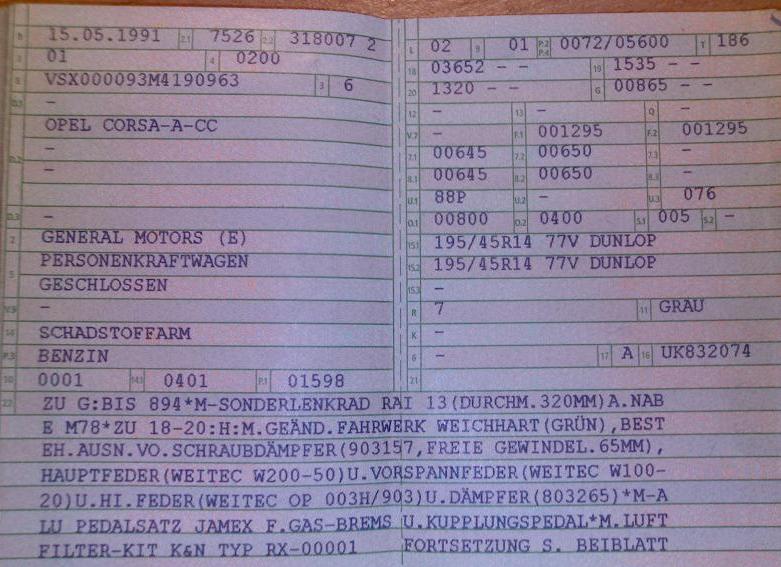 B 15.05.1991 2.1 7526 2.2 318007 2
01 4 0200
VSX000093M4190963 3 6
D.1 -
OPEL CORSA-A-CC
-
D.2 -
D.3 -
2 GENERAL MOTORS (E)
PERSONENKRAFTWAGEN
5 GESCHLOSSEN
V.9 -
14 SCHADSTOFFARM
P.3 BENZIN
10 0001 14.1 0401 P.1 01598
L 02 9 01 P.2 P.4 0072/05600 T 186
18 03652 - - 19 1535 - -
20 1320 - - G 00865 - -
12 - 13 - Q -
V.7 - F.1 001295 F.2 001295
7.1 00645 7.2 00650 7.3 -
8.1 00645 8.2 00650 8.3 -
U.1 88P U.2 - U.3 076
O.1 00800 O.2 0400 S.1 005 S.2 -
15.1 195/45R14 77V DUNLOP
15.2 195/45R14 77V DUNLOP
15.3 -
R 7 11 GRAU
K -
6 - 17 A 16 UK832074
21
22 ZU G:BIS 894*M-SONDERLENKRAD RAI 13(DURCHM.320MM)A.NAB
E M78*ZU 18-20:H:M.GEÄND.FAHRWERK WEICHHART(GRÜN),BEST
EH.AUSN.VO.SCHRAUBDÄMPFER(903157,FREIE GEWINDEL.65MM),
HAUPTFEDER(WEITEC W200-50)U.VORSPANNFEDER(WEITEC W100-
20)U.HI.FEDER(WEITEC OP 003H/903)U.DÄMPFER(803265)*M-A
LU PEDALSATZ JAMEX F.GAS-BREMS U.KUPPLUNGSPEDAL*M.LUFT
FILTER-KIT K&N TYP RX-00001 FORTSETZUNG S. BEIBLATT